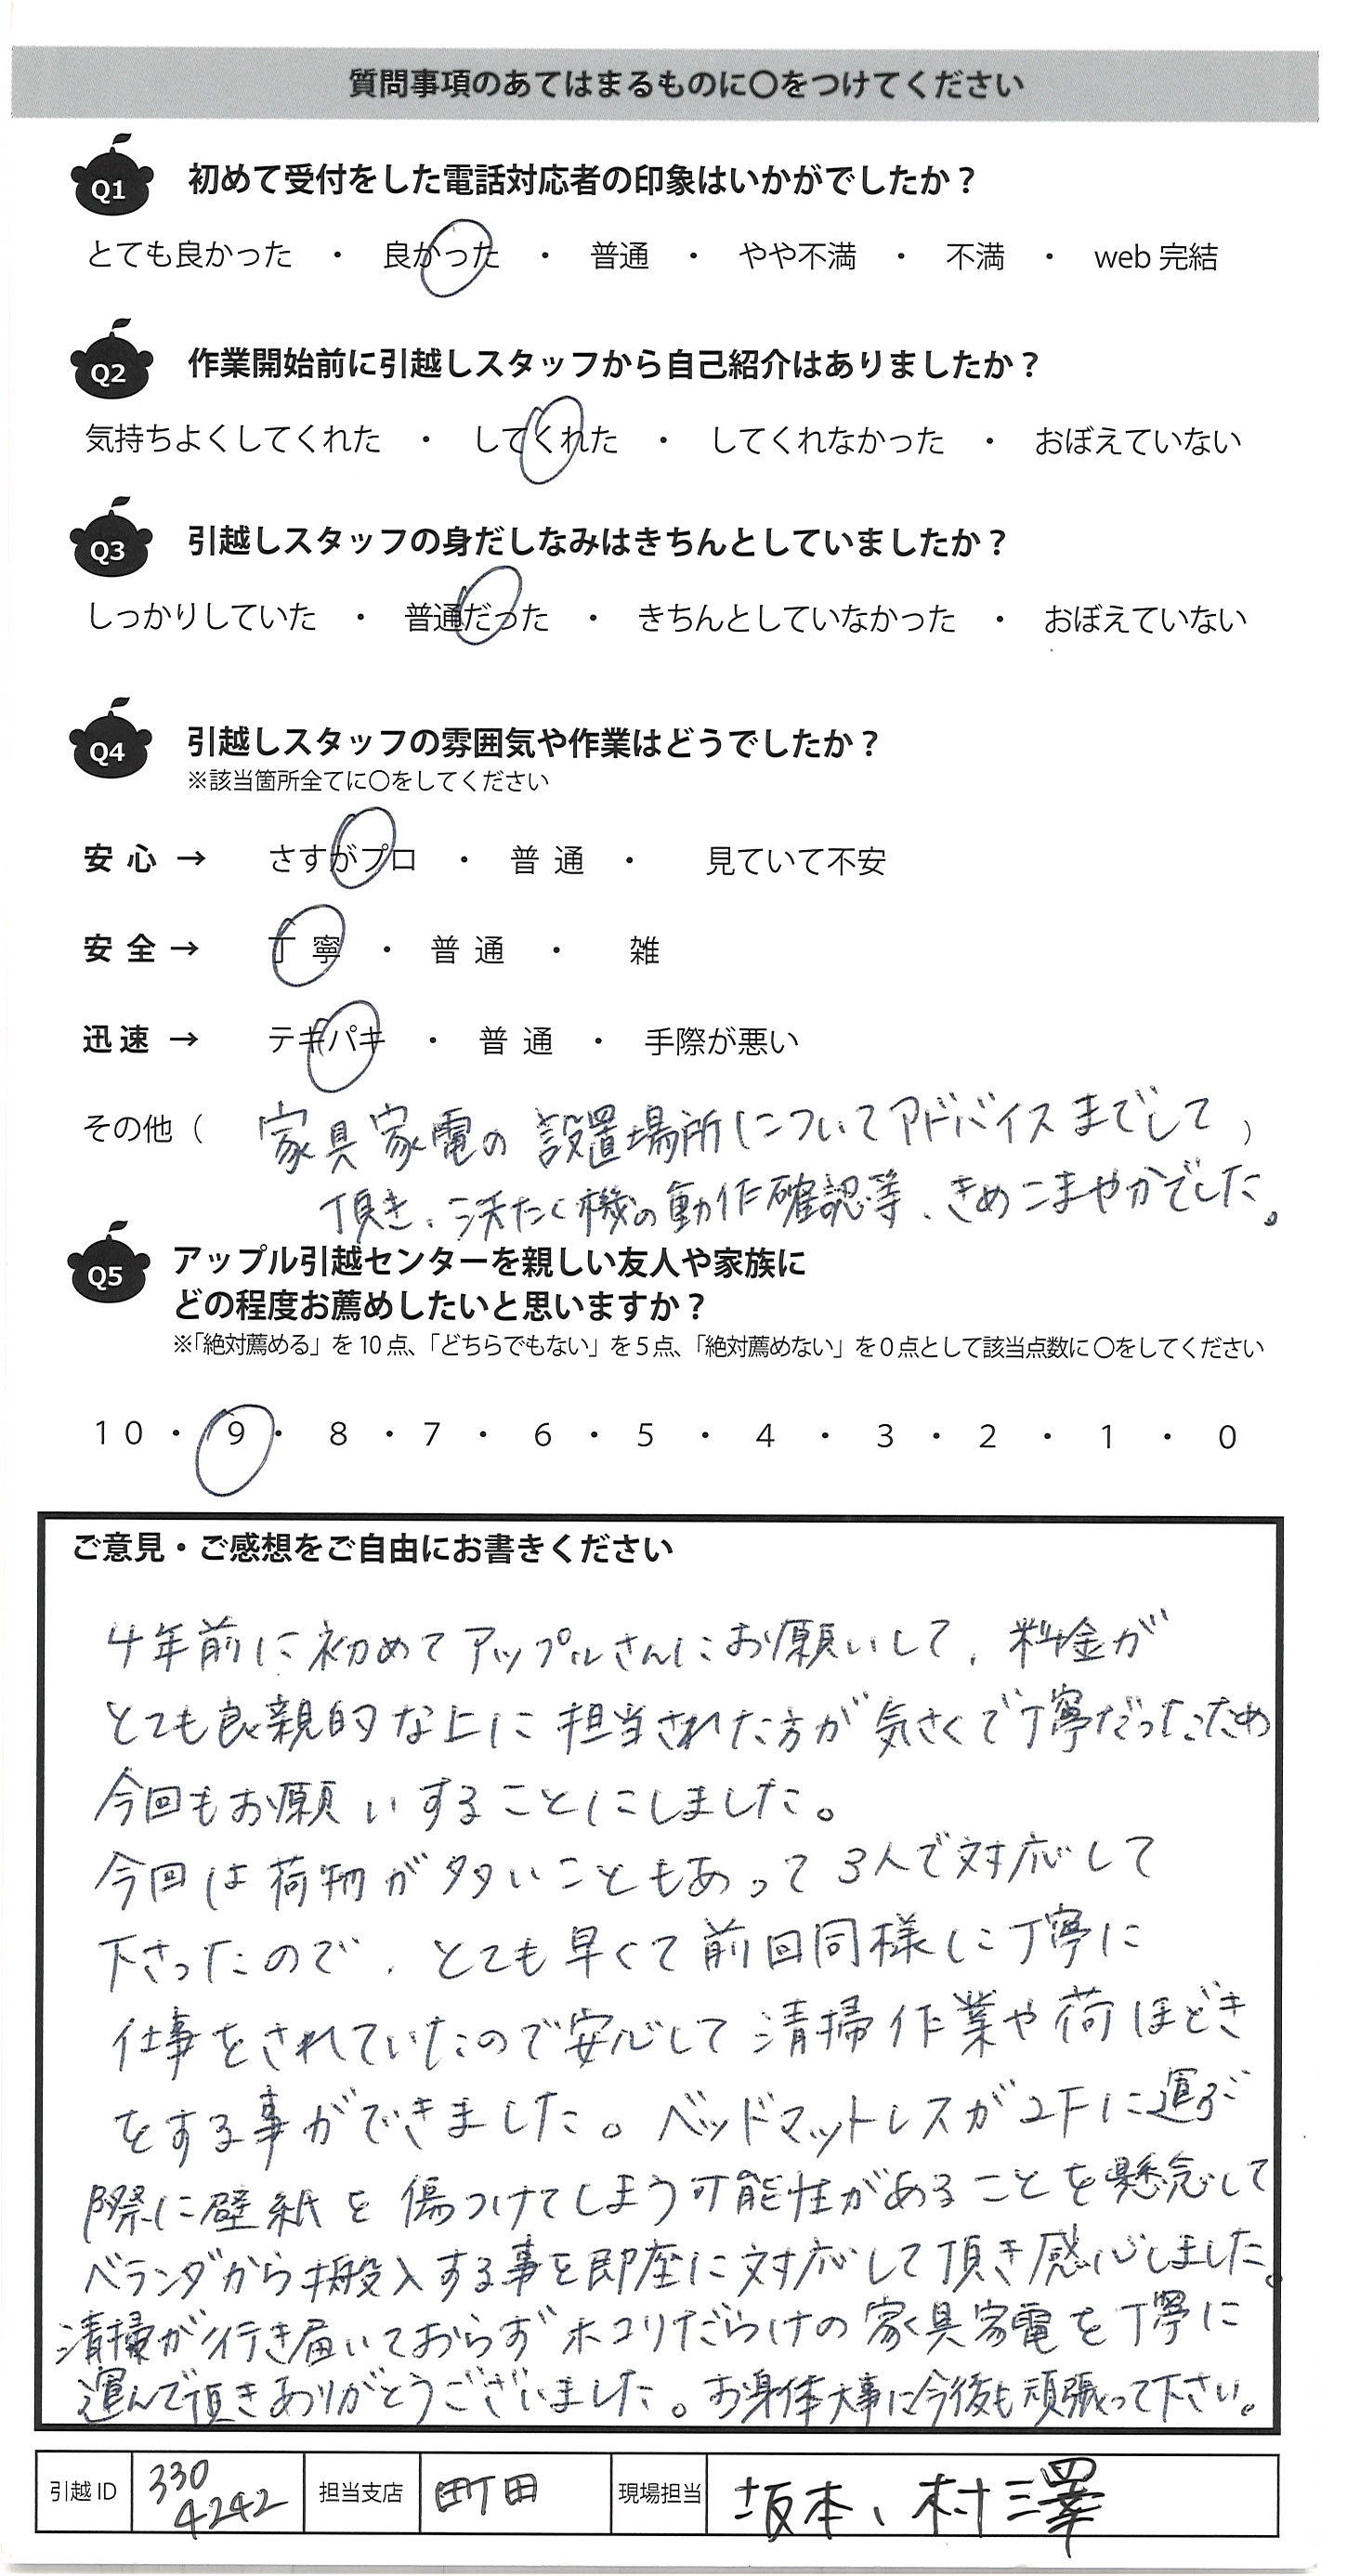 質問事項のあてはまるものに〇をつけてください
Q1 初めて受付をした電話対応者の印象はいかがでしたか？
とても良かった ・ 良かった ・ 普通 ・ やや不満 ・ 不満 ・ web 完結
Q2 作業開始前に引越しスタッフから自己紹介はありましたか？
気持ちよくしてくれた ・ してくれた ・ してくれなかった ・ おぼえていない
Q3 引越しスタッフの身だしなみはきちんとしていましたか？
しっかりしていた ・ 普通だった ・ きちんとしていなかった ・ おぼえていない
Q4 引越しスタッフの雰囲気や作業はどうでしたか？
※該当箇所全てに〇をしてください
安心 → さすがプロ ・ 普通 ・ 見ていて不安
安全 → 丁寧 ・ 普通 ・ 雑
迅速 → テキパキ ・ 普通 ・ 手際が悪い
その他（ 家具家電の設置場所についてアドバイスまでして ）
頂き、洗たく機の動作確認等、きめこまやかでした。
Q5 アップル引越センターを親しい友人や家族に
どの程度お薦めしたいと思いますか？
※「絶対薦める」を 10 点、「どちらでもない」を 5 点、「絶対薦めない」を 0 点として該当点数に 〇をしてください
10 ・ 9 ・ 8 ・ 7 ・ 6 ・ 5 ・ 4 ・ 3 ・ 2 ・ 1 ・ 0
ご意見・ご感想をご自由にお書きください
4年前に初めてアップルさんにお願いして、料金が
とても良親的な上に担当された方が気さくで丁寧だったため
今回もお願いすることにしました。
今回は荷物が多いこともあって3人で対応して
下さったので、とても早くて前回同様に丁寧に
仕事をされていたので安心して清掃作業や荷ほどき
をする事ができました。ベッドマットレスが2Fに運ぶ
際に壁紙を傷つけてしまう可能性があることを懸念して
ベランダから搬入する事を即座に対応して頂き感心しました。
清掃が行き届いておらずホコリだらけの家具家電を丁寧に
運んで頂きありがとうございました。お身体大事に今後も頑張って下さい。
引越 ID 330 4242 担当支店 町田 現場担当 坂本、村澤